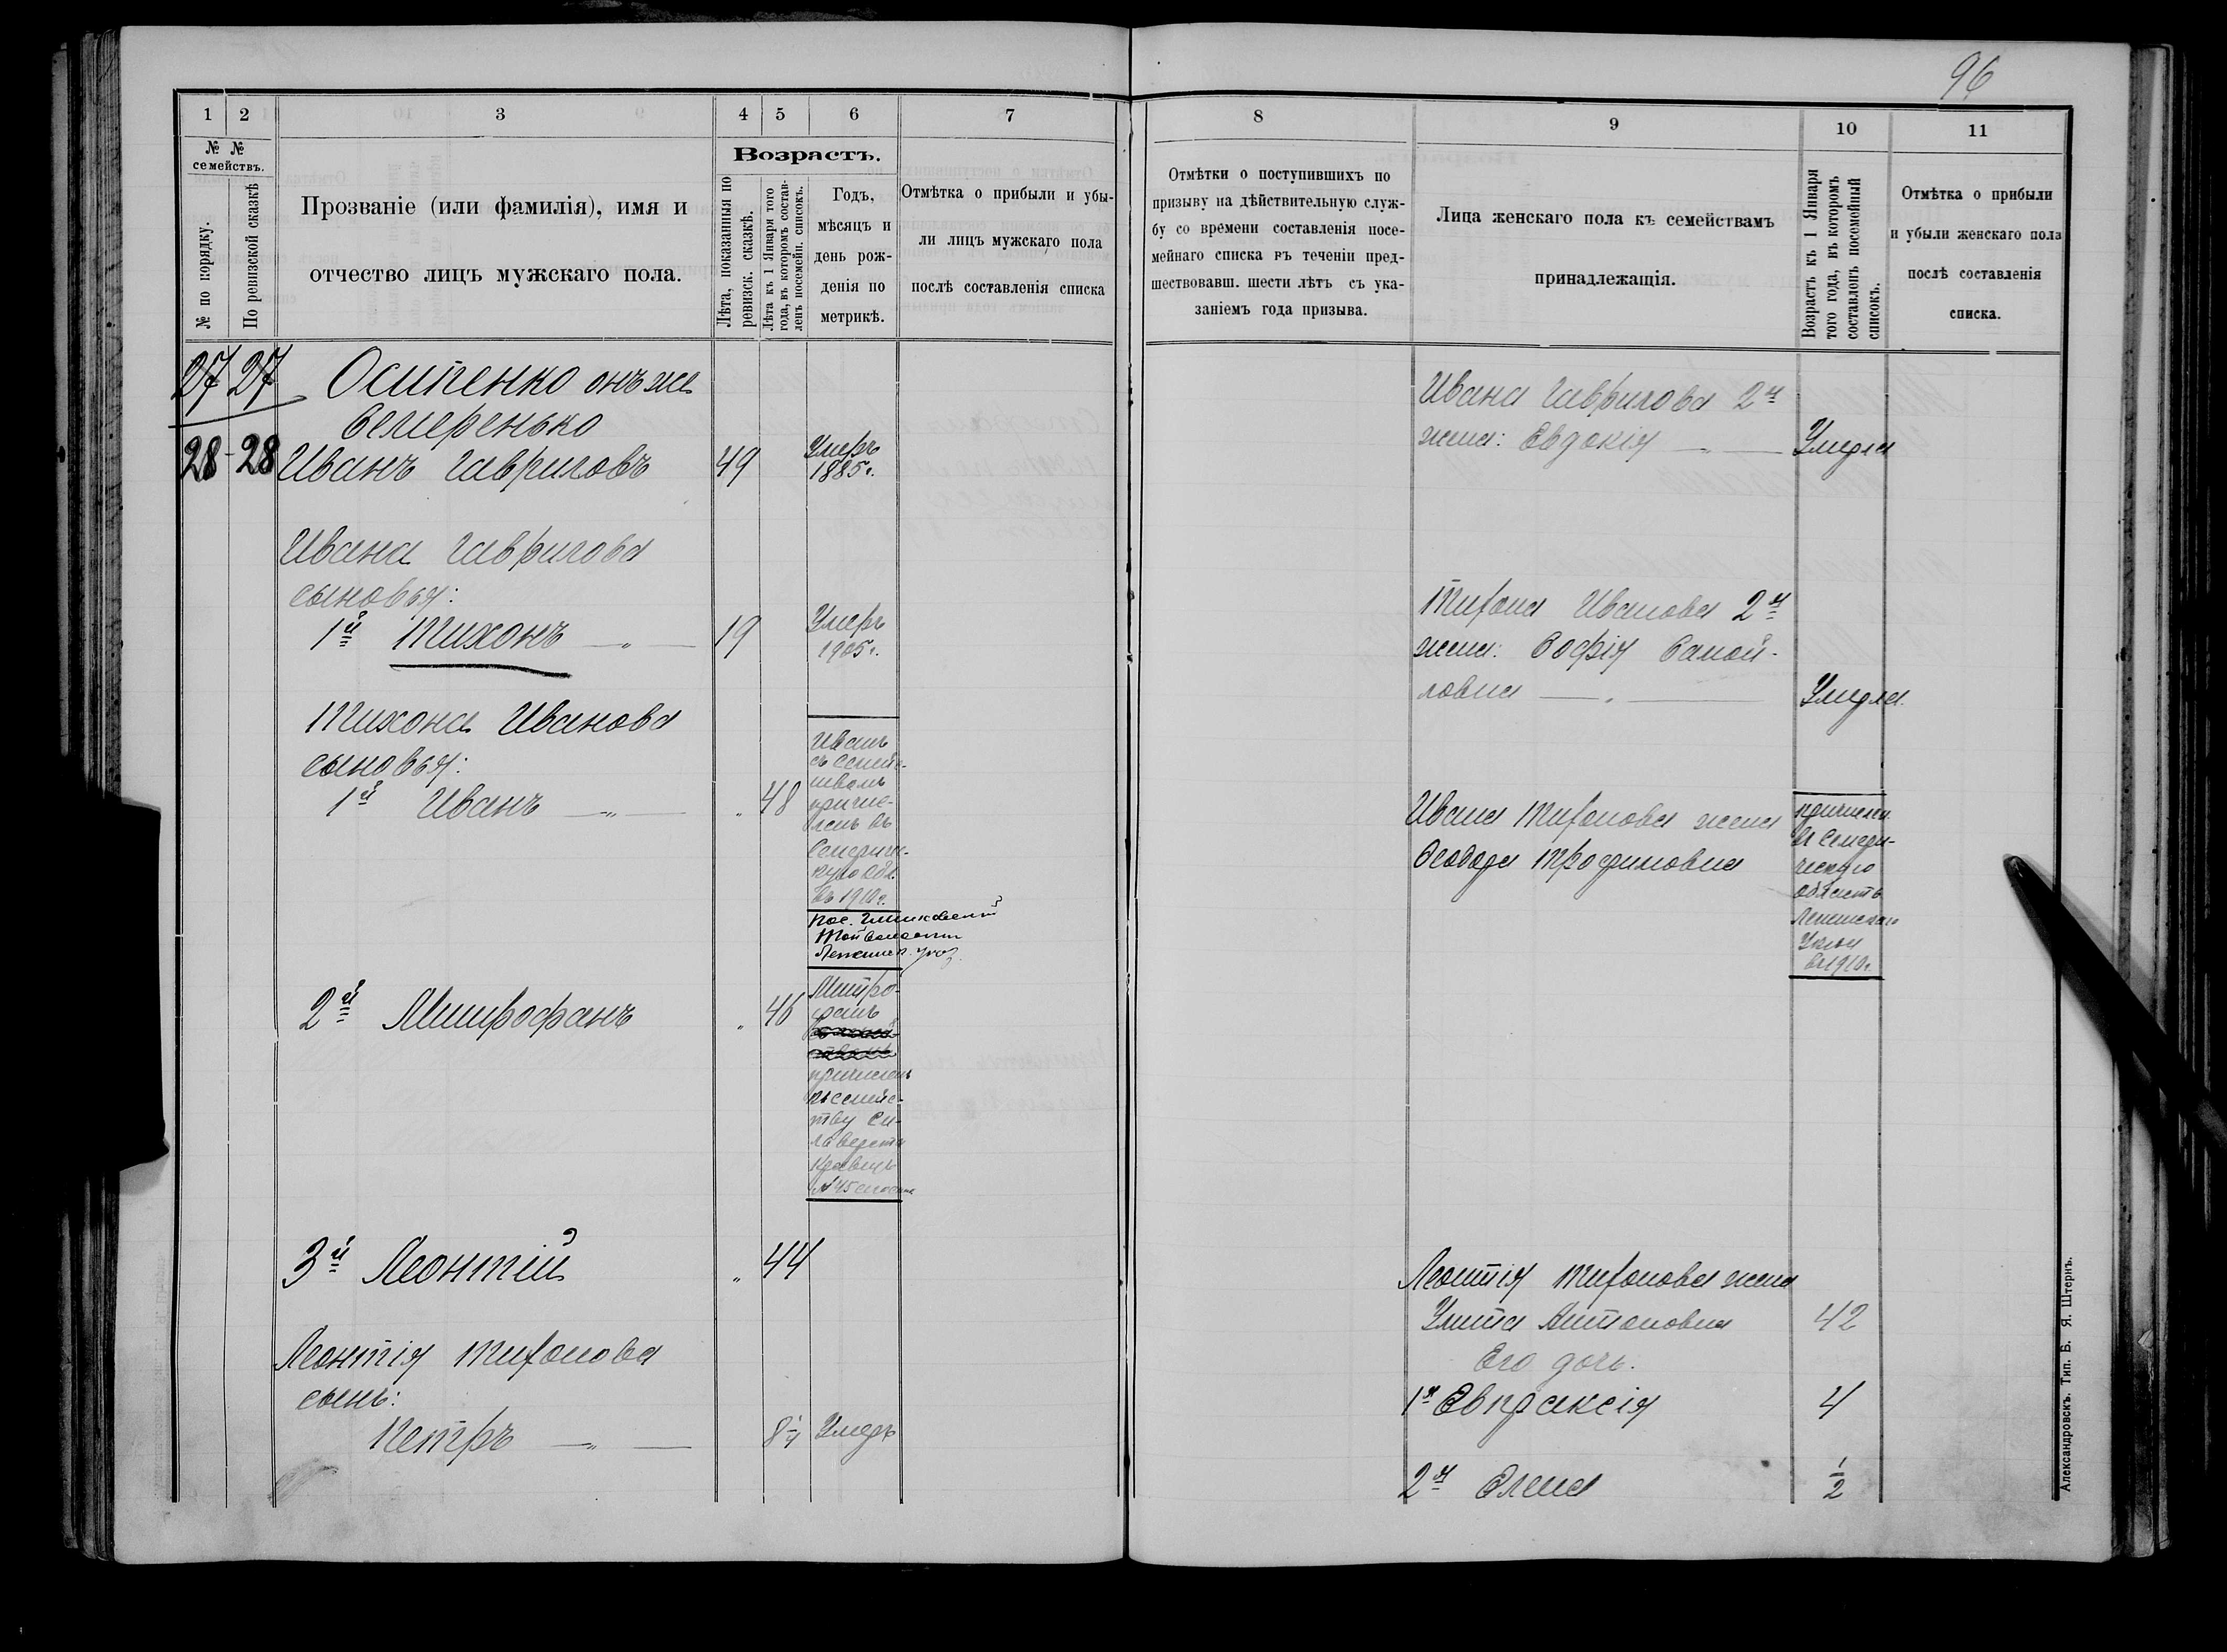 96
1 2 3 4 5 6 7
№ № семействъ.
№ по порядку.
По ревизской сказкѣ
Прозваніе (или фамилія), имя и
отчество лицъ мужскаго пола.
Возрастъ.
Лѣта, показанныя по
ревизск. сказкѣ.
Лѣта къ 1 Января того
года, въ которомъ состав-
ленъ посемейн. списокъ.
Годъ,
мѣсяцъ и
день рож-
денія по
метрикѣ.
Отмѣтка о прибыли и убы-
ли лицъ мужскаго пола
послѣ составленія списка
27 27 Осипенко онъ же
Семеренько
28 - 28 Иванъ Гавриловъ 49 Умеръ
1885 г.
Ивана Гаврилова
сыновья:
1й Тихонъ — " — 19 Умеръ
1905 г.
Тихона Иванова
сыновья:
1й Иванъ — " — " 48
Иванъ
съ семей-
ствомъ
причис-
ленъ въ
Семиречен-
кую обл.
въ 1910 г.
Той волости
2й Митрофанъ " 46
Митро-
фанъ
причисленъ
къ семейс-
тву Си-
лверста
Кравец
№ 45
3й Леонтій " 44
Леонтія Тихонова
сынъ:
Петръ — " — 8 1/4 Умеръ
8 9 10 11
Отмѣтки о поступившихъ по
призыву на дѣйствительную служ-
бу со времени составленія посе-
мейнаго списка въ теченіи пред-
шествовавш. шести лѣтъ съ ука-
заніемъ года призыва.
Лица женскаго пола къ семействамъ
принадлежащія.
Возрастъ къ 1 Января
того года, въ которомъ
составленъ посемейный
списокъ.
Отмѣтка о прибыли
и убыли женскаго пола
послѣ составленія
списка.
Ивана Гаврилова 2я
жена: Евдокія — " — Умерла
Тихона Иванова 2я
жена: Софія Самой-
ловна — " — Умерла.
Ивана Тихонова жена
Феодора Трофимовна
причислен.
въ Семире-
ческую
область
въ 1910 г.
Леонтія Тихонова жена
Улита Антоновна 42
Его дочь.
1я Евпраксія 4
2я Елена 1/2
Александровскъ. Тип. Б. Я. Штернъ.